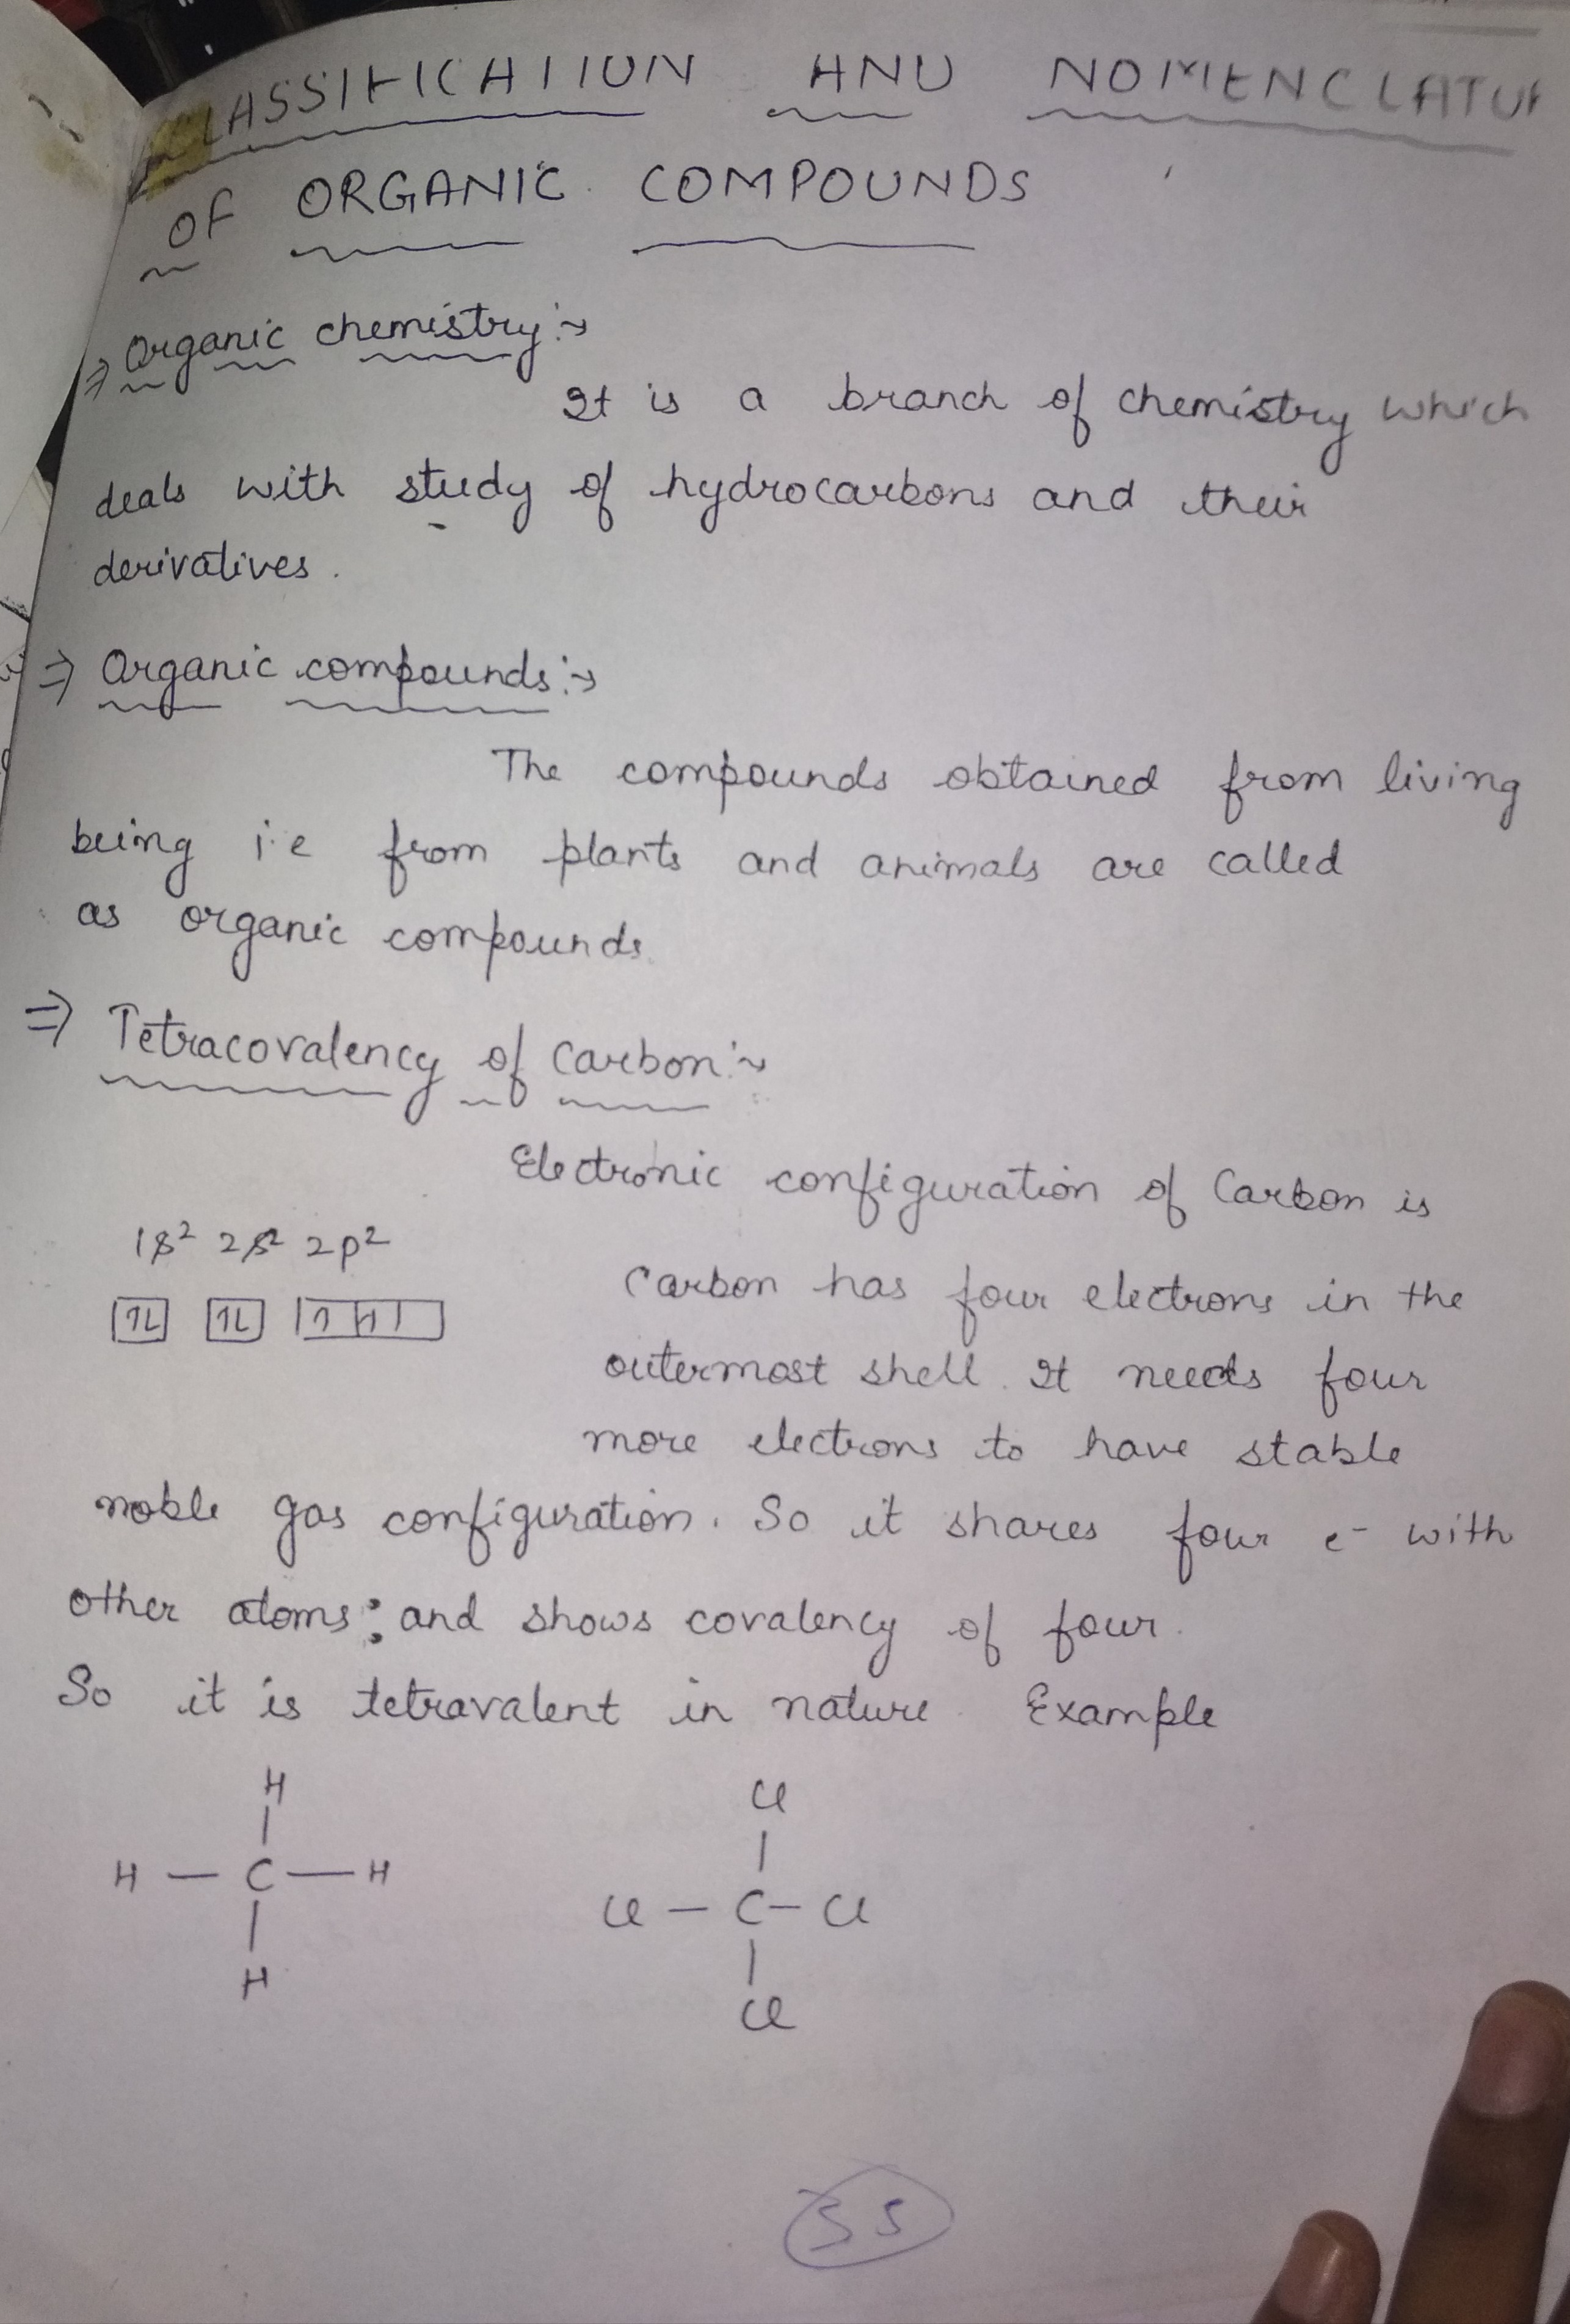 CLASSIFICATION AND NOMENCLATUR
OF ORGANIC COMPOUNDS
⇒ Organic chemistry :→
It is a branch of chemistry which
deals with study of hydrocarbons and their
derivatives.
⇒ Organic compounds :→
The compounds obtained from living
being i.e from plants and animals are called
as organic compounds.
⇒ Tetracovalency of Carbon :→
Electronic configuration of Carbon is
1s² 2s² 2p²
Carbon has four electrons in the
↑↓ ↑↓ ↑ ↑
outermost shell. It needs four
more electrons to have stable
noble gas configuration. So it shares four e⁻ with
other atoms; and shows covalency of four.
So it is tetravalent in nature. Example
H
Cl
H — C — H
Cl — C — Cl
H
Cl
35